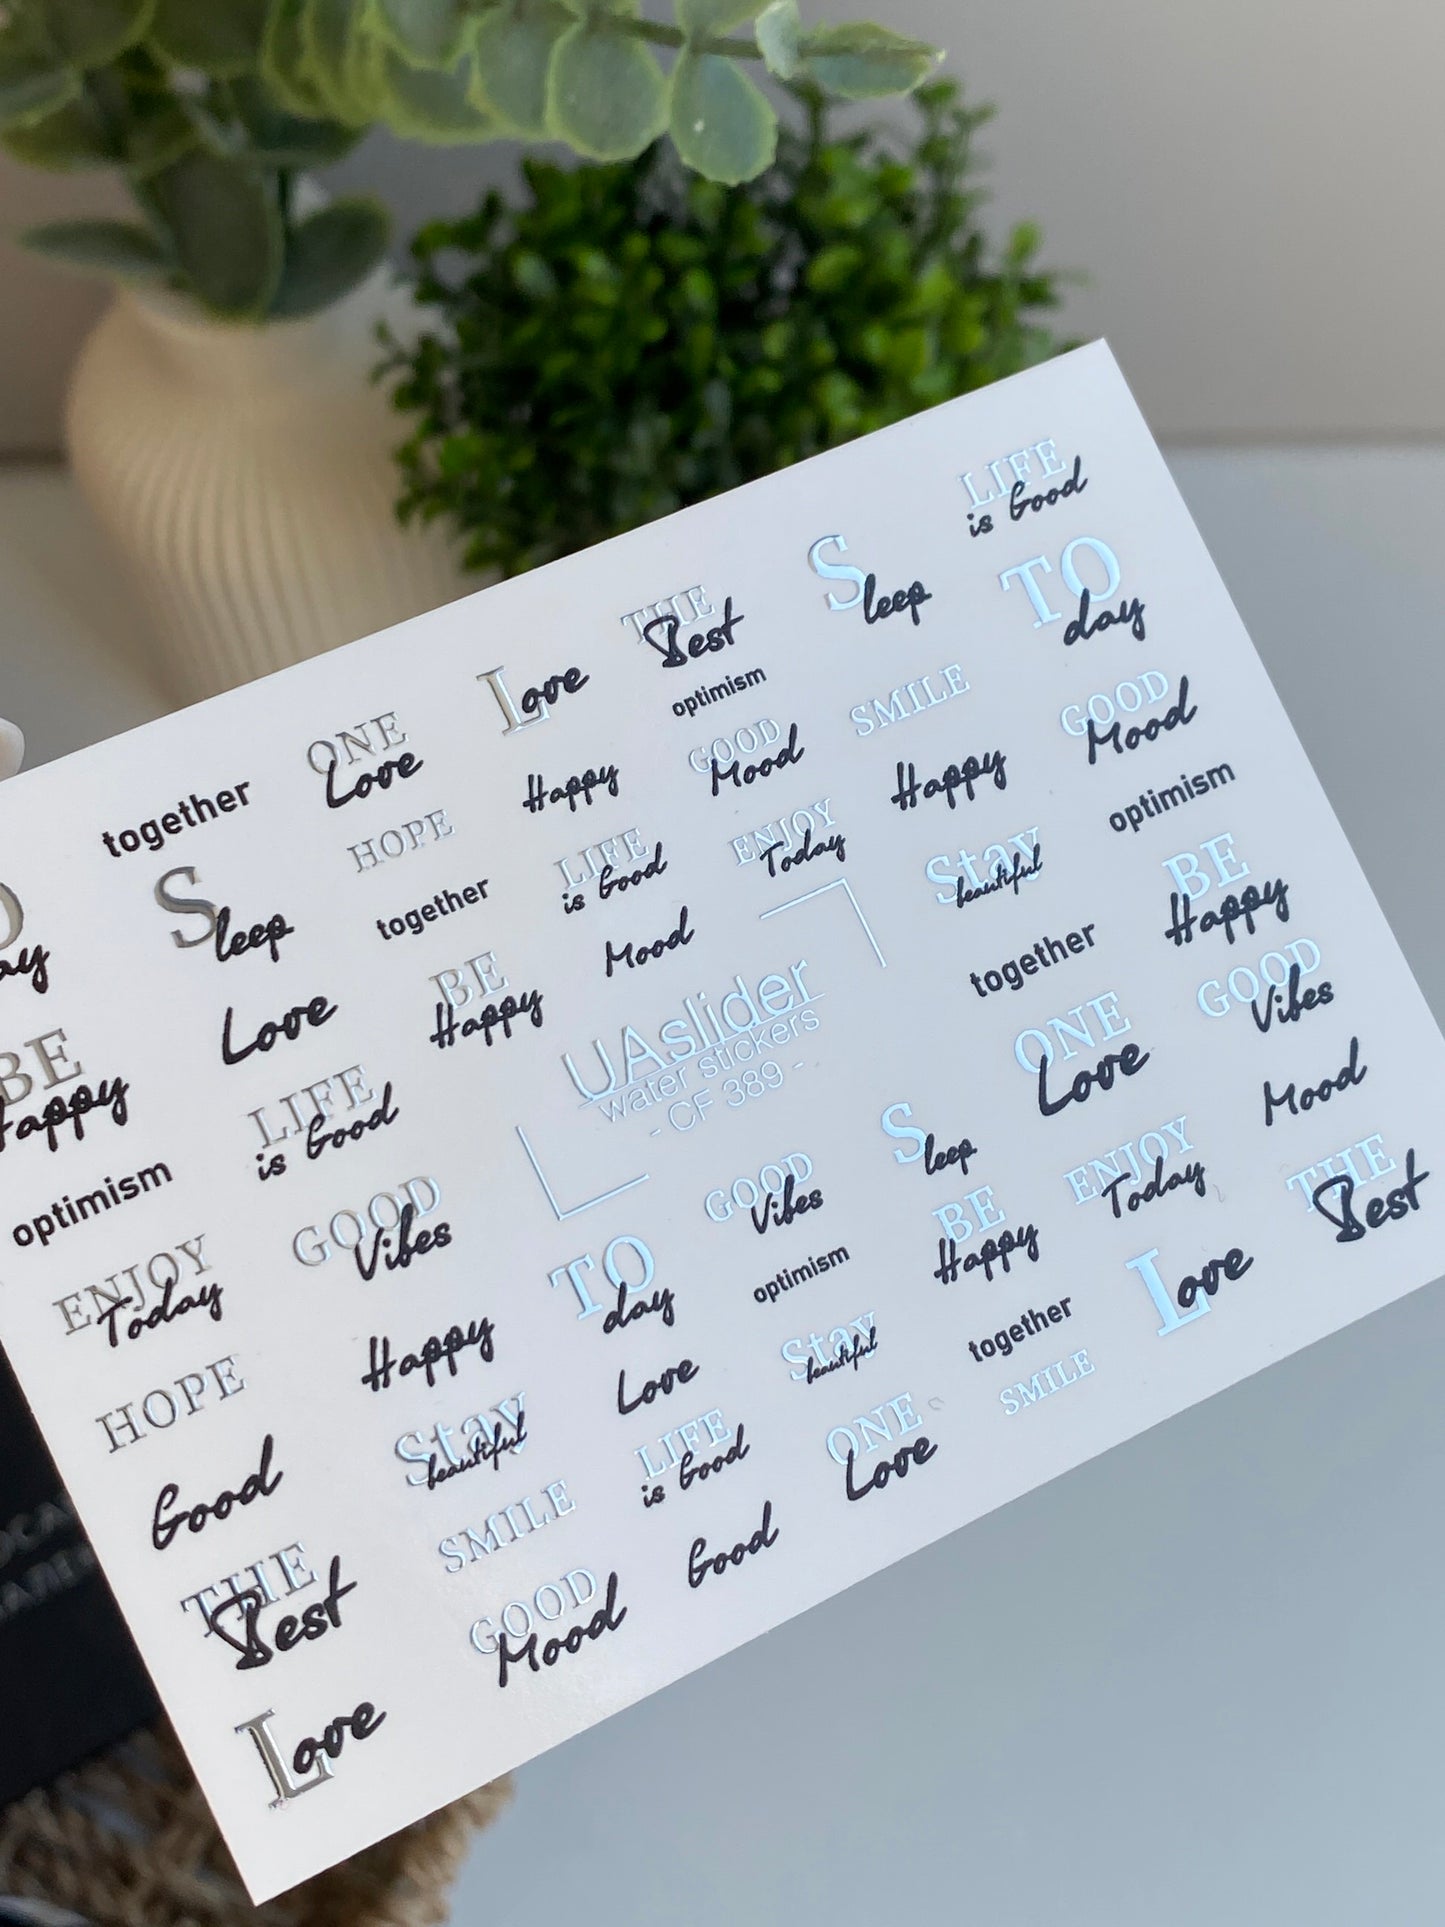 LIFE
is Good
Sleep
TOday
THE
Best
Love
optimism
SMILE
GOOD
Mood
ONE
Love
together
Happy
GOOD
Mood
Happy
optimism
HOPE
LIFE
is Good
ENJOY
Today
Stay
beautiful
BE
Happy
Sleep
together
Mood
together
GOOD
Vibes
ay
Love
BE
Happy
UAslider
water stickers
- CF 389 -
ONE
Love
Mood
BE
Happy
LIFE
is Good
Sleep
ENJOY
Today
THE
Best
optimism
GOOD
Vibes
GOOD
Vibes
BE
Happy
Love
ENJOY
Today
TOday
optimism
together
HOPE
Happy
Love
Stay
beautiful
SMILE
Good
Stay
beautiful
LIFE
is Good
ONE
Love
THE
Best
SMILE
Good
GOOD
Mood
Love